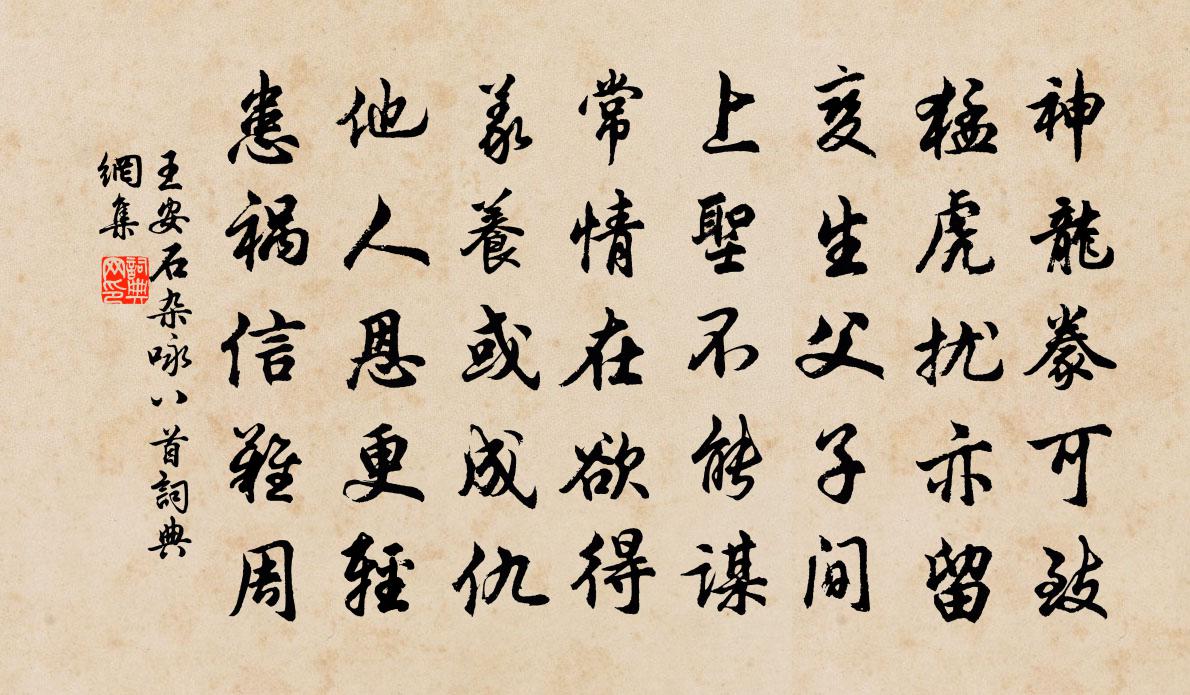 神龍豢可致
猛虎扰亦留
变生父子間
上聖不能謀
常情在欲得
義養或成仇
他人恩更輕
患禍信難周
王安石杂咏八首詞典
網集
詞典
网印